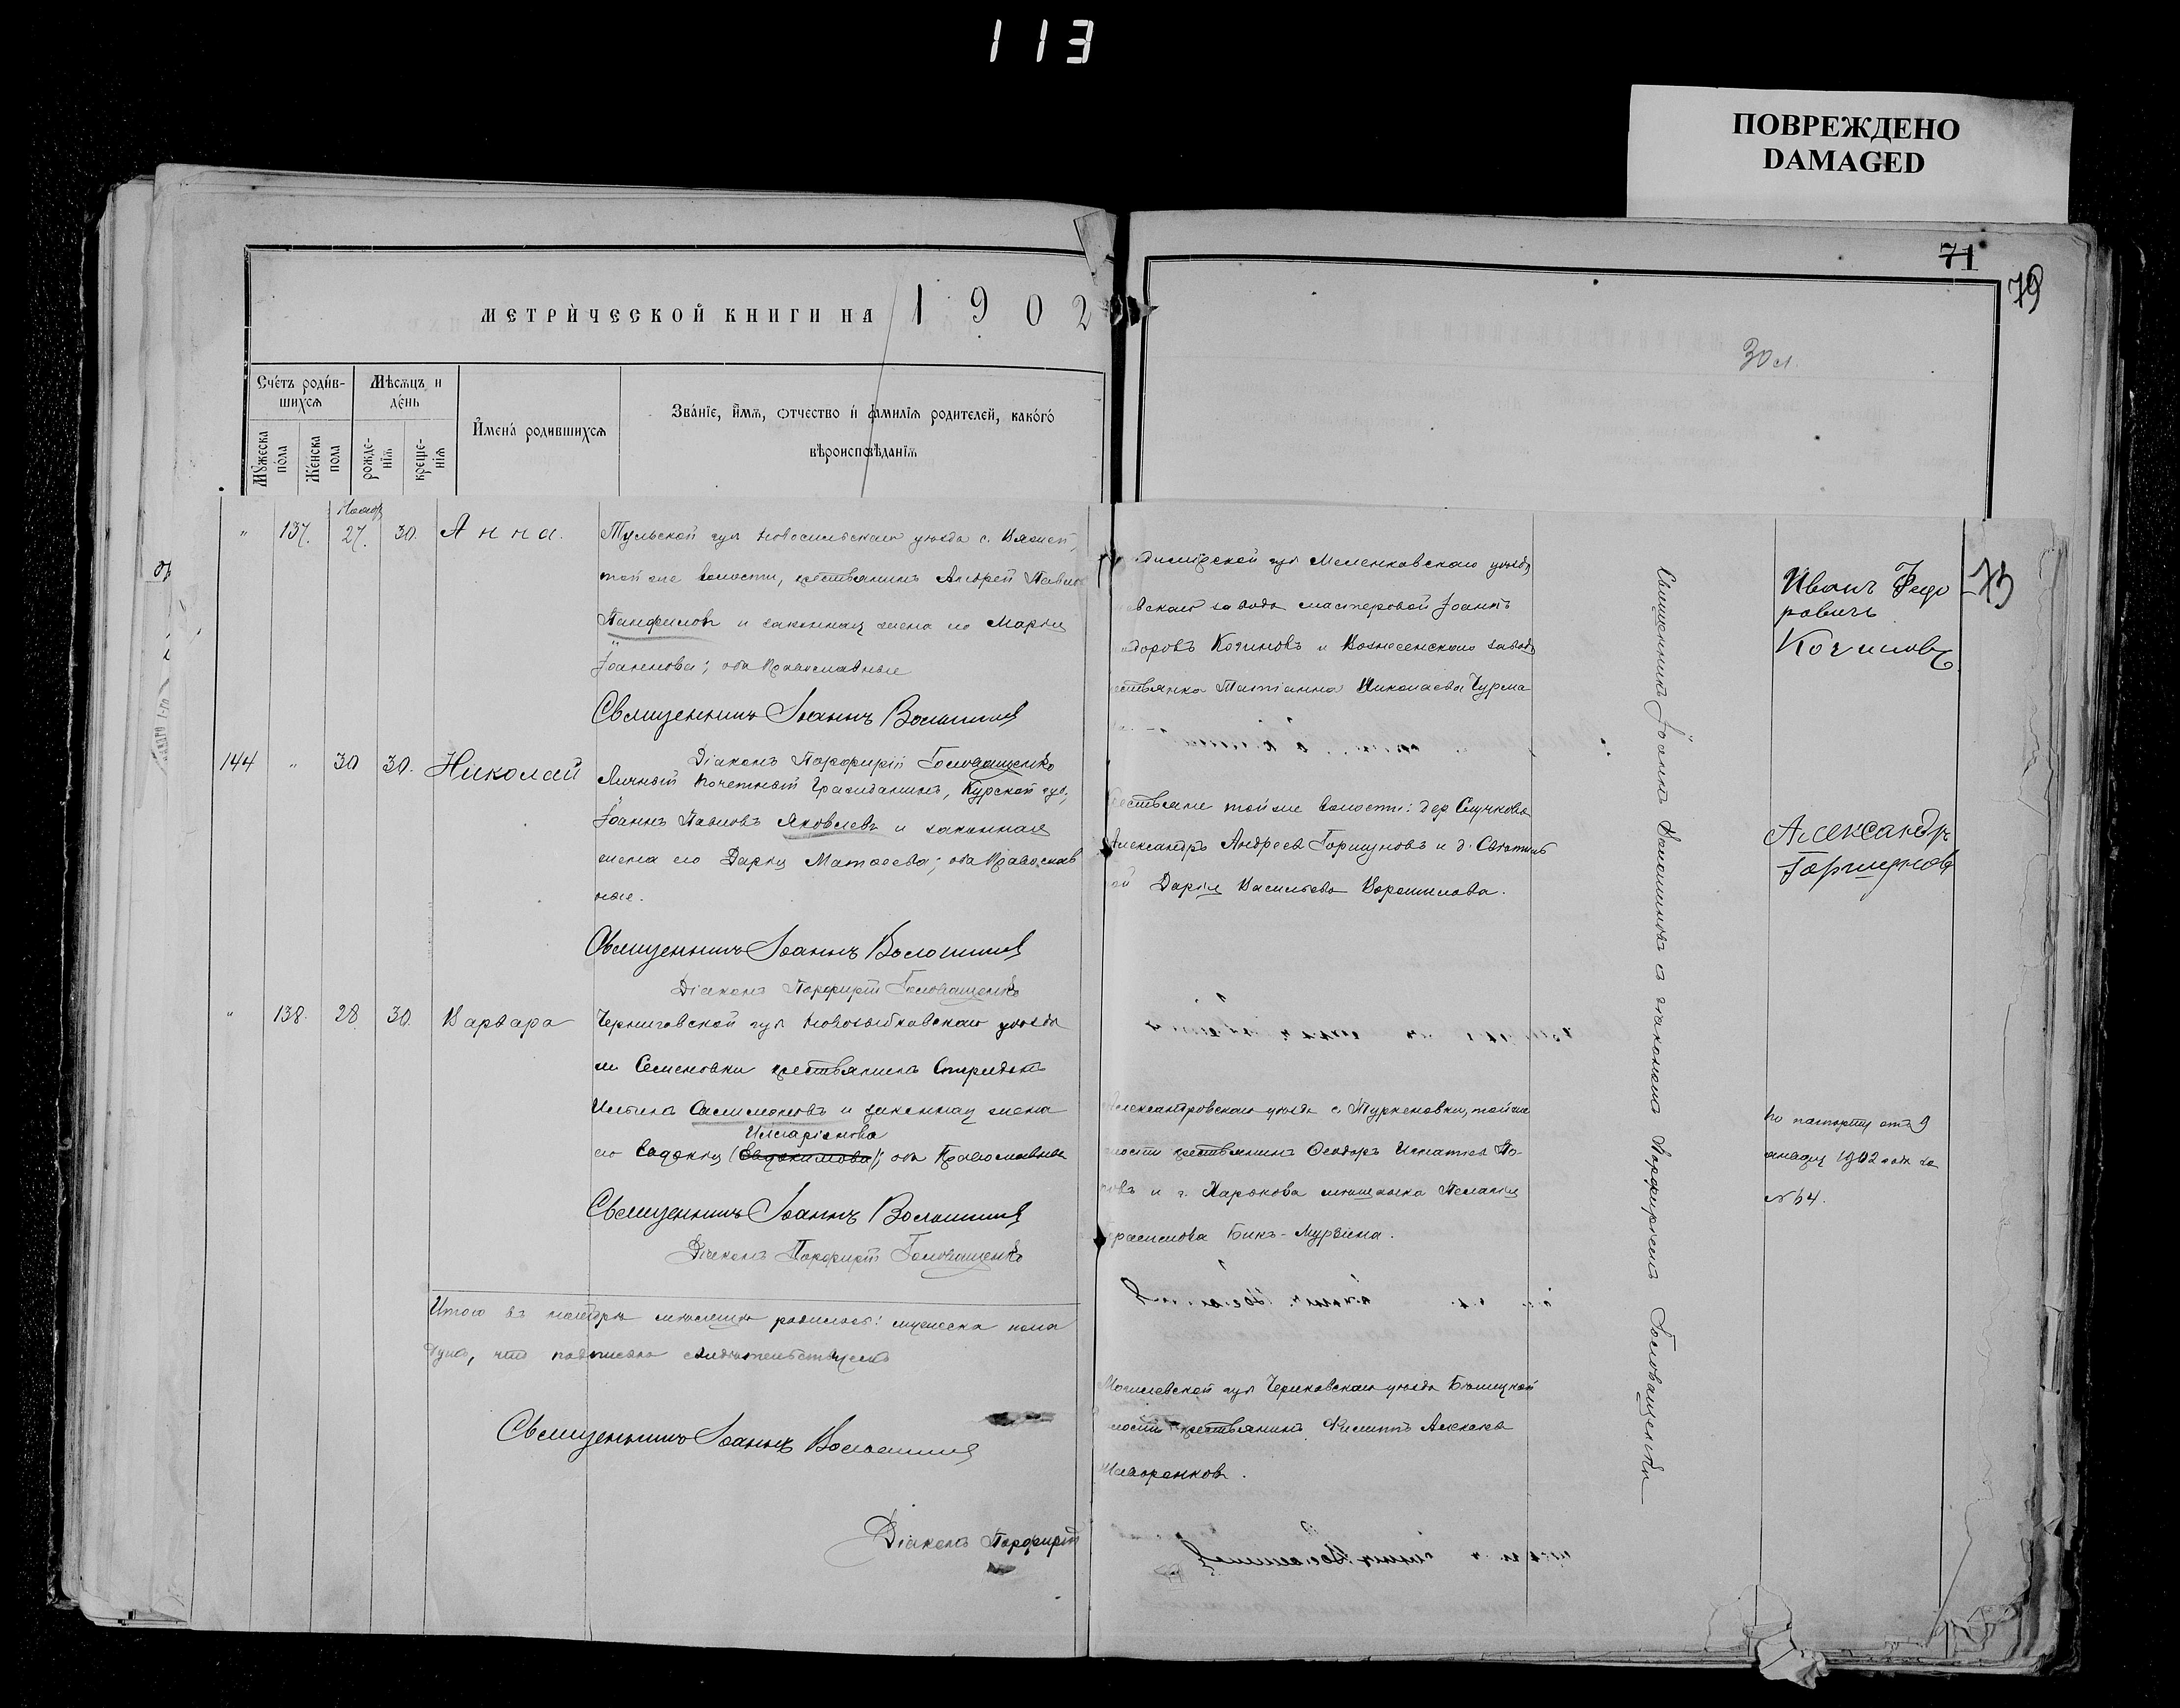 113
ПОВРЕЖДЕНО
DAMAGED
71
79
МЕТРИЧЕСКОЙ КНИГИ НА 1902
30 л.
Счетъ родив-
шихся
Мѣсяцъ и
день
Имена родившихся
Званіе, имя, отчество и фамилія родителей, какого
вѣроисповѣданія
Мужеска
пола
Женска
пола
рожде-
нія
креще-
нія
" 137. 27. 30. Анна.
Тульской губ Новосильскаго уѣзда с.
той же волости, крестьянинъ Андрей Павлов
Панфиловъ и законная жена его Марія
Іоаннова; оба Православные
Священникъ Іоаннъ Волошинъ
Діаконъ Порфирій Головащенко
144 " 30 30. Николай
Личный Почетный Гражданинъ, Курской губ,
Іоаннъ Павловъ Яковлевъ и законная
жена его Дарія Матвеева; оба Православ
ные.
Священникъ Іоаннъ Волошинъ
Діаконъ Порфирій Головащенко
" 138. 28. 30. Варвара
Черниговской губ Новозыбковскаго уѣзда
м Семеновки крестьянинъ Спиридонъ
и законная жена
Илларіонова
его Евдокія (Евдокимова); оба Православные
Священникъ Іоаннъ Волошинъ
Діаконъ Порфирій Головащенко
Итого въ ноябрѣ мѣсяцѣ родилось: мужеска пола
что подписью свидѣтельствуемъ
Священникъ Іоаннъ Волошинъ
Діаконъ Порфирій
димірской губ Меленковскаго уѣзда
вскаго завода мастеровой Іоаннъ
одоровъ Кочиновъ и Вознесенскаго завода
естьянка Татіанна Николаева Чурма
рестьяне той же волости: дер Случкова
Александръ Андреевъ Горшуновъ и д.
Дарія Васильева Ворошилова.
Александровскаго уѣзда с. Туркеновки, той же
лости крестьянинъ Ѳеодоръ Игнатьев По-
овъ и г. Харькова мѣщанка Пелагія
расимова Бикъ-Мурзина.
Могилевской губ Чериковскаго уѣзда
лости крестьянинъ Филиппъ Алексѣев
Священникъ Іоаннъ Волошиновъ съ діакономъ Порфиріемъ Головащенкомъ
Иванъ Федо
ровичъ
Кочиновъ
73
Александръ
Горшуновъ
По паспорту отъ 9
1902 года за
№ 64.